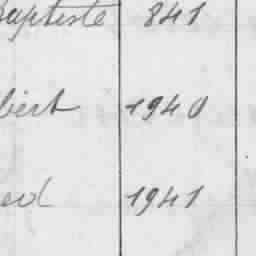 Baptiste 841
bert 1940
ed 1941